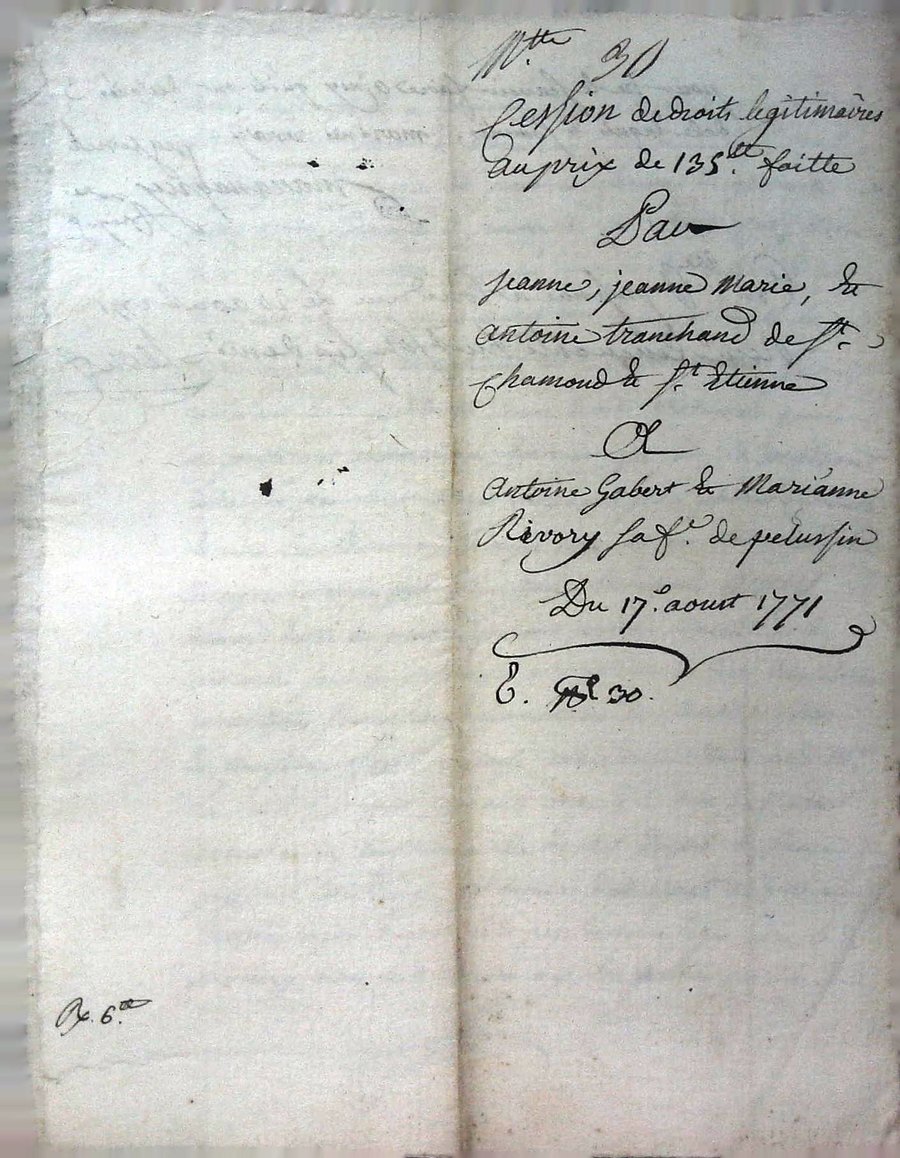 30
Cession de droits legitimaires
au prix de 135.tt faitte
Par
jeanne, jeanne Marie, &
antoine tranchand de St.
Chamond & St. Etienne
A
antoine Gabert & Marianne
Rivory sa fe. de pelussin
Du 17.e aoust 1771
E. No 30.
6.tt